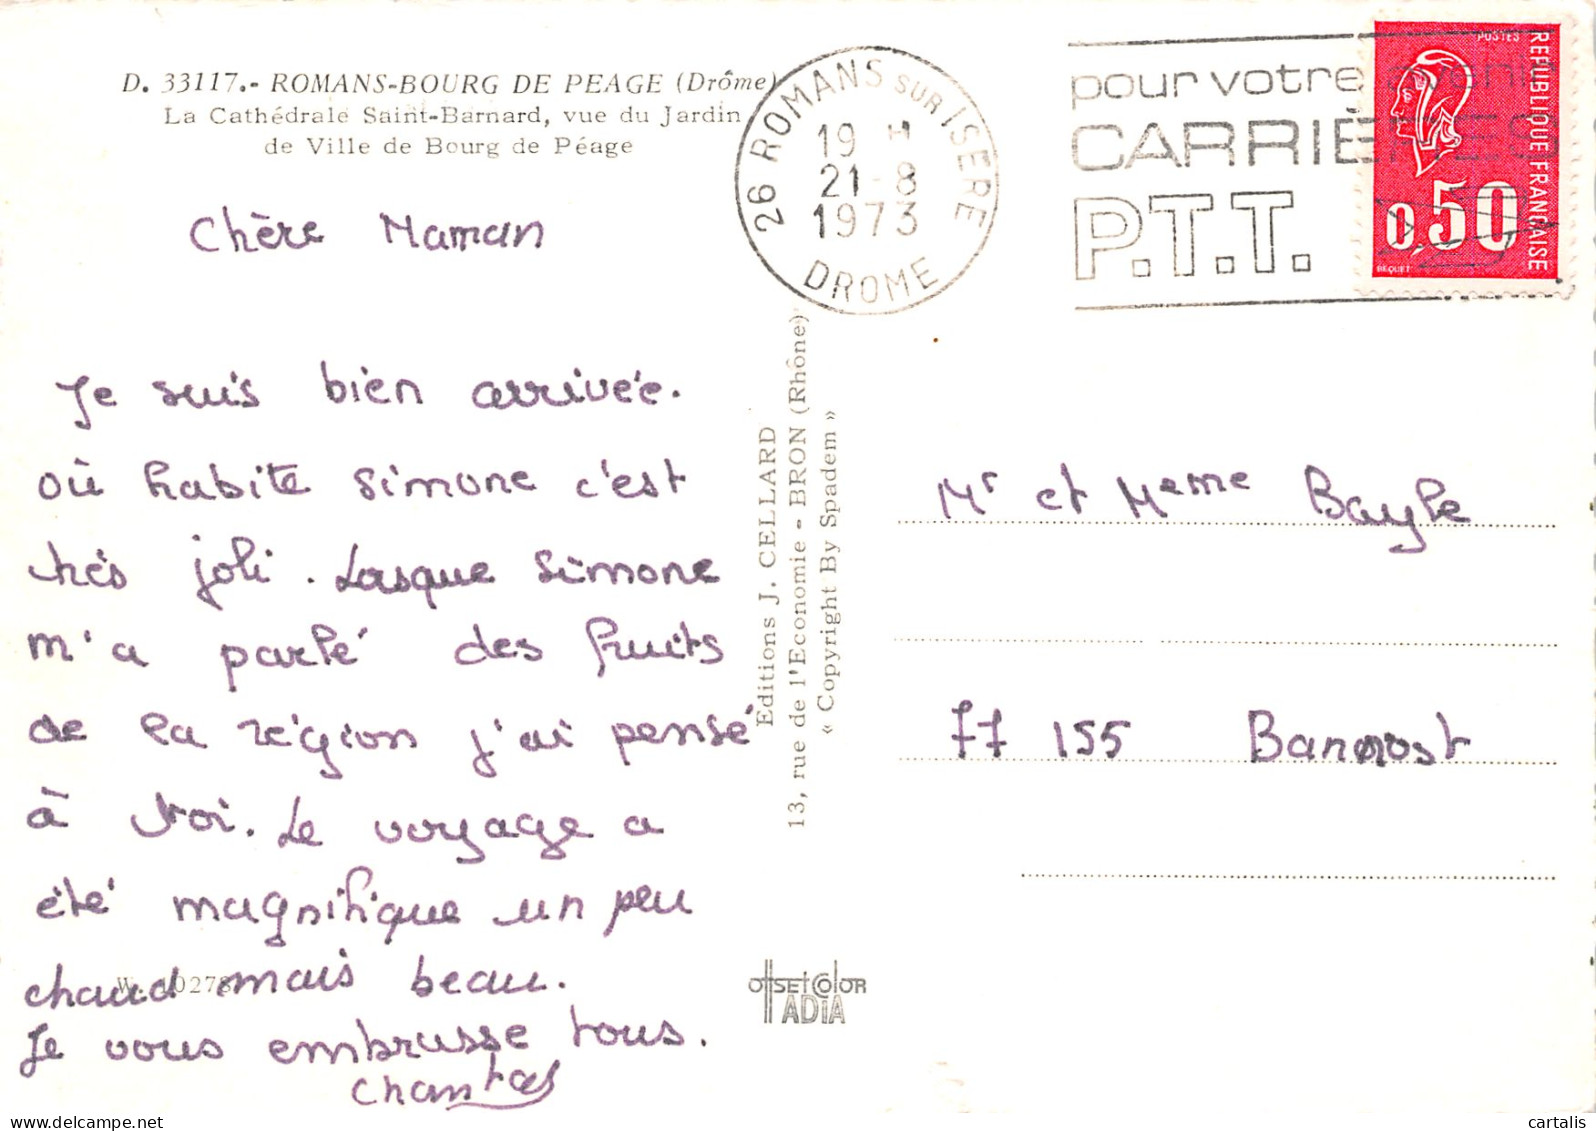 D. 33117.- ROMANS-BOURG DE PEAGE (Drôme)
La Cathédrale Saint-Barnard, vue du Jardin
de Ville de Bourg de Péage
26 ROMANS SUR ISERE
19 H
21-8
1973
DROME
pour votre avenir
CARRIÈRES
P.T.T.
POSTES
REPUBLIQUE FRANÇAISE
0,50
BEQUET
Chère Maman
Je suis bien arrivée.
où habite Simone c'est
très joli. Lorsque Simone
m'a parlé des fruits
de la région j'ai pensé
à toi. Le voyage a
été magnifique un peu
chaud mais beau.
Je vous embrasse tous.
Chantal
Editions J. CELLARD
13, rue de l'Economie - BRON (Rhône)
« Copyright By Spadem »
Mr et Meme Bayle
77 155 Bannost
OffSet Color
ADIA
cartalis
delcampe.net